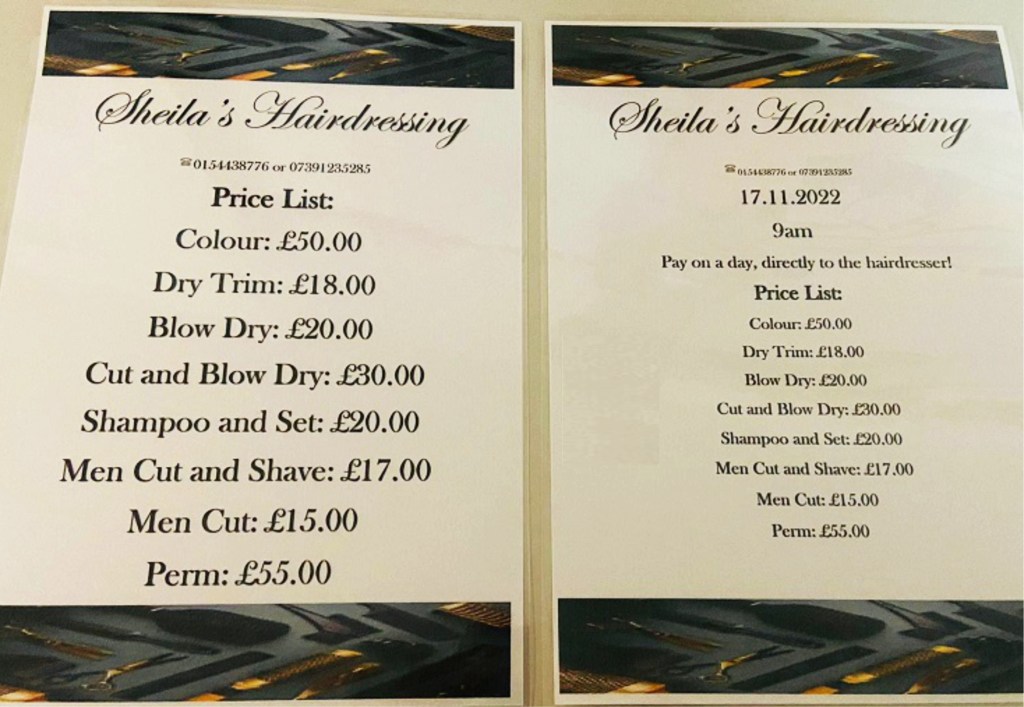 Sheila's Hairdressing
☎0154438776 or 07391235285
Price List:
Colour: £50.00
Dry Trim: £18.00
Blow Dry: £20.00
Cut and Blow Dry: £30.00
Shampoo and Set: £20.00
Men Cut and Shave: £17.00
Men Cut: £15.00
Perm: £55.00
Sheila's Hairdressing
☎0154438776 or 07391235285
17.11.2022
9am
Pay on a day, directly to the hairdresser!
Price List:
Colour: £50.00
Dry Trim: £18.00
Blow Dry: £20.00
Cut and Blow Dry: £30.00
Shampoo and Set: £20.00
Men Cut and Shave: £17.00
Men Cut: £15.00
Perm: £55.00